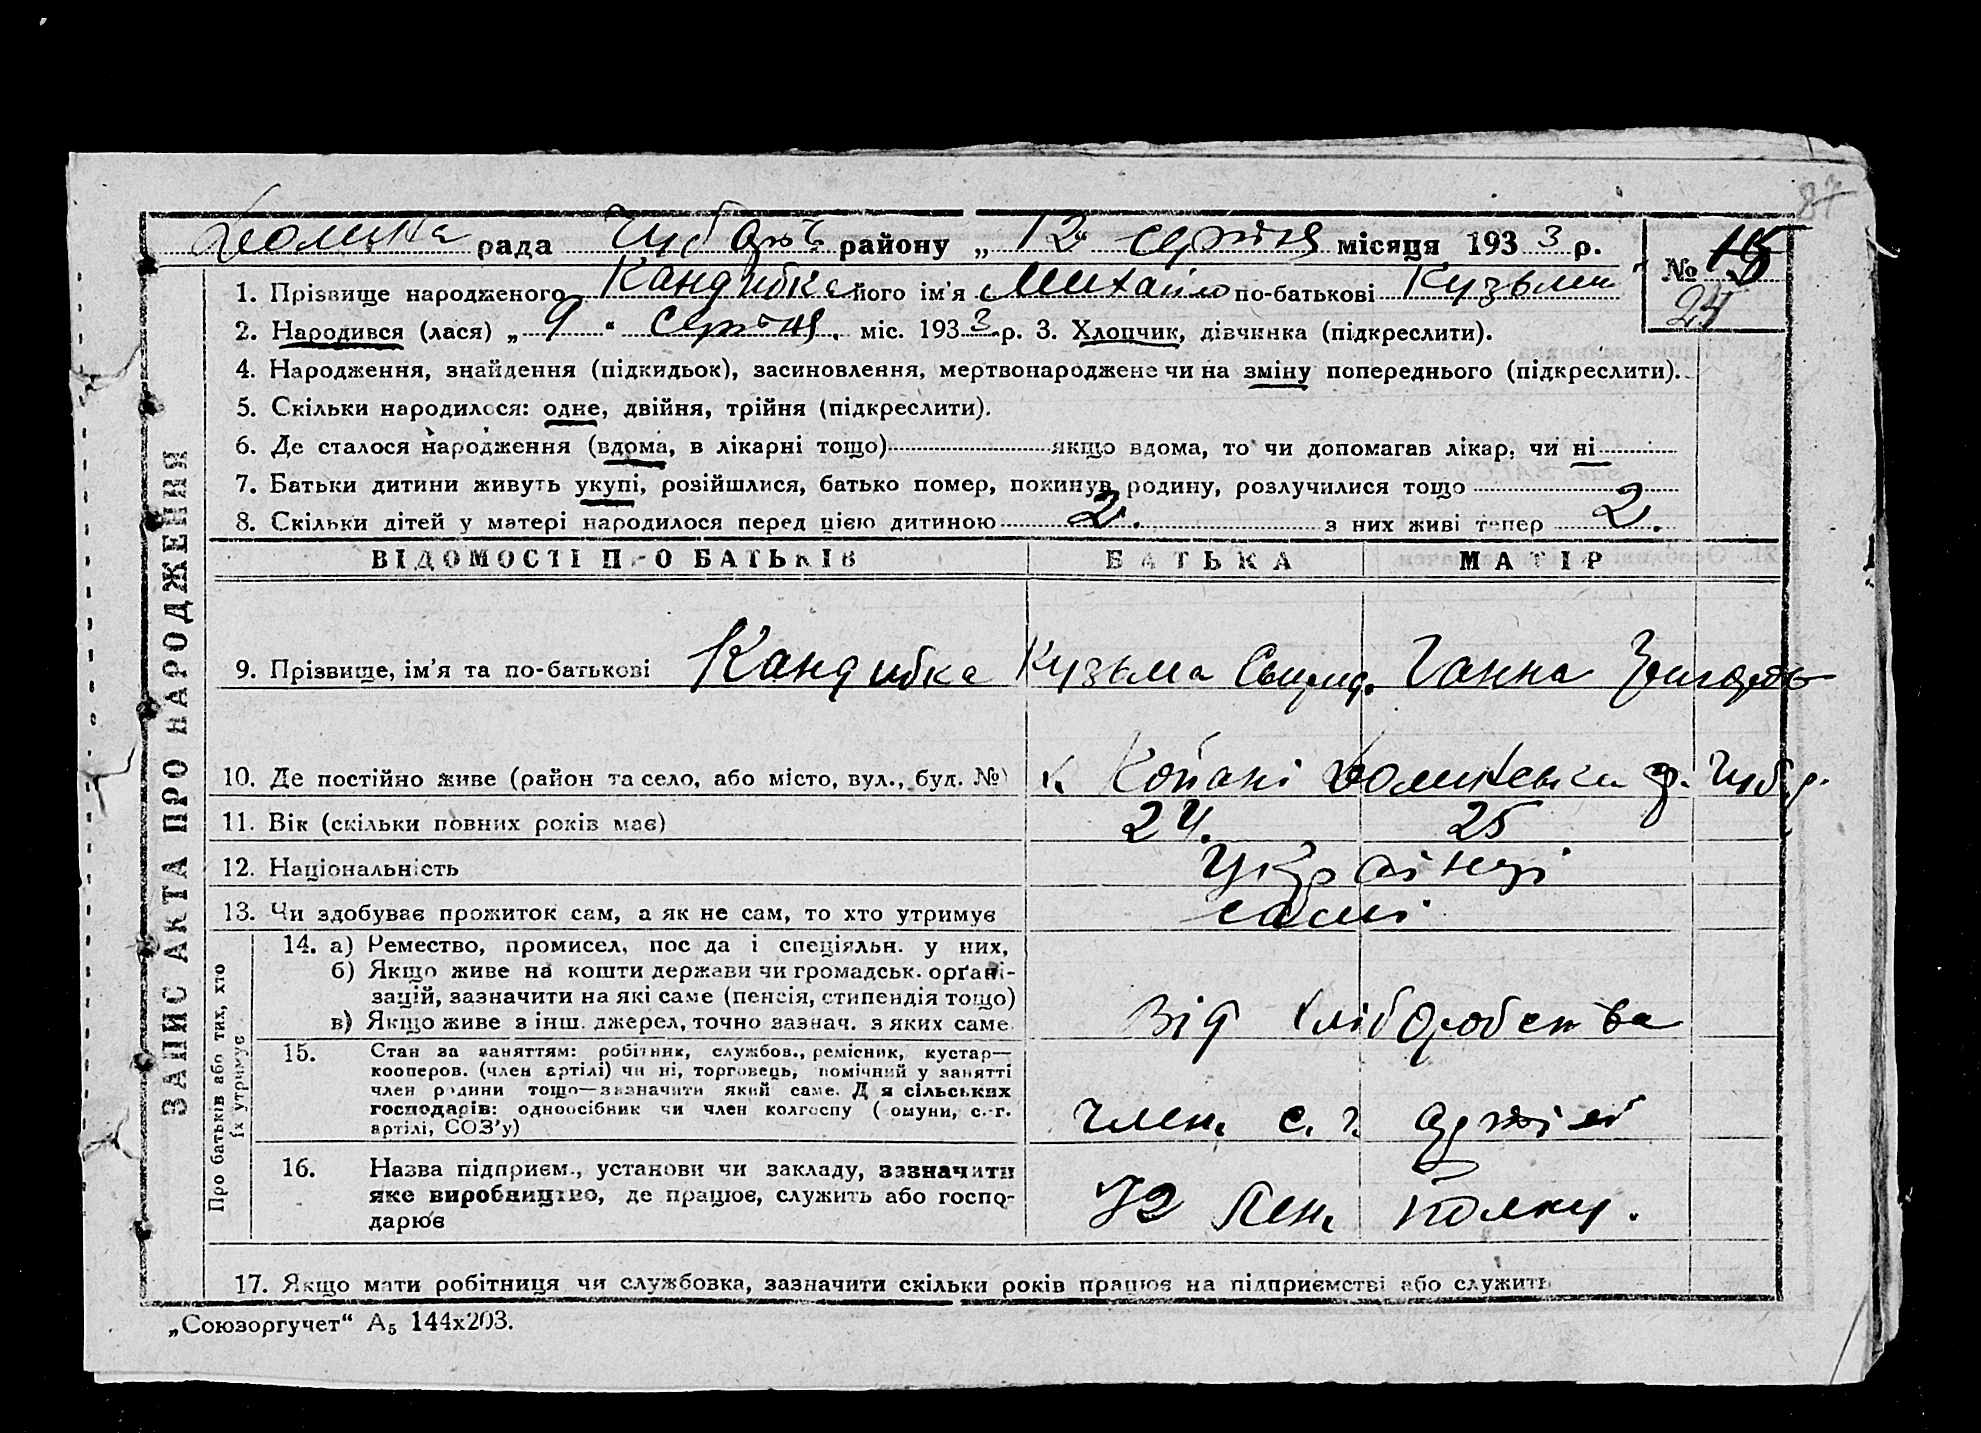 87
Долинська рада Чубарів району „ 12 “ серпня місяця 193 3 р. № 15
1. Прізвище народженого Кандибка його ім'я Михайло по-батькові Кузьмич 24
2. Народився (лася) „ 9 “ серпня міс. 193 3 р. 3. Хлопчик, дівчинка (підкреслити).
4. Народження, знайдення (підкидьок), засиновлення, мертвонароджене чи на зміну попереднього (підкреслити).
5. Скільки народилося: одне, двійня, трійня (підкреслити).
6. Де сталося народження (вдома, в лікарні тощо) якщо вдома, то чи допомагав лікар, чи ні
7. Батьки дитини живуть укупі, розійшлися, батько помер, покинув родину, розлучилися тощо
8. Скільки дітей у матері народилося перед цією дитиною 2. з них живі тепер 2.
ЗАПИС АКТА ПРО НАРОДЖЕННЯ
ВІДОМОСТІ ПРО БАТЬКІВ БАТЬКА МАТІР
9. Прізвище, ім'я та по-батькові Кандибка Кузьма Ганна
10. Де постійно живе (район та село, або місто, вул., буд. №) Копані Долинська Чуб. р.
11. Вік (скільки повних років має) 24. 25
12. Національність Українці
13. Чи здобуває прожиток сам, а як не сам, то хто утримує самі
Про батьків або тих, хто їх утримує
14. а) Ремество, промисел, посада і спеціяльн. у них,
б) Якщо живе на кошти держави чи громадськ. орґані-
зацій, зазначити на які саме (пенсія, стипендія тощо)
в) Якщо живе з інш. джерел, точно зазнач. з яких саме Від хліборобства
15. Стан за заняттям: робітник, службов., ремісник, кустар—
кооперов. (член артілі) чи ні, торговець, помічний у занятті
член родини тощо—зазначити який саме. Для сільських
господарів: одноосібник чи член колгоспу (комуни, с.-г.
артілі, СОЗ'у) член с. г. артілі
16. Назва підприєм., установи чи закладу, зазначити
яке виробництво, де працює, служить або госпо-
дарює 72 полку.
17. Якщо мати робітниця чи службовка, зазначити скільки років працює на підприємстві або служить
„Союзоргучет“ А5 144x203.